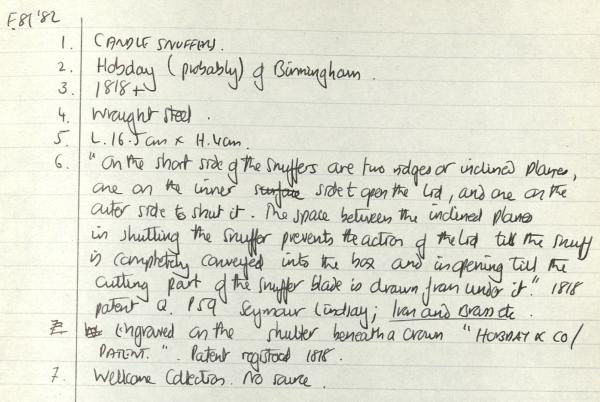 F.81'82
1. CANDLE SNUFFERS.
2. Hobday (probably) of Birmingham.
3. 1818+
4. Wrought steel.
5. L.16.5cm x H.4cm.
6. "On the short side of the snuffers are two ridges or inclined planes,
one on the inner surface side to open the lid, and one on the
outer side to shut it. The space between the inclined planes
in shutting the snuffer prevents the action of the lid till the snuff
is completely conveyed into the box and in opening till the
cutting part of the snuffer blade is drawn from under it." 1818
patent Q. P59 Seymour Lindsay; Iron and Brass etc.
Engraved on the shutter beneath a crown "HOBDAY & CO/
PATENT.". Patent registered 1818.
7. Wellcome Collection. No source.